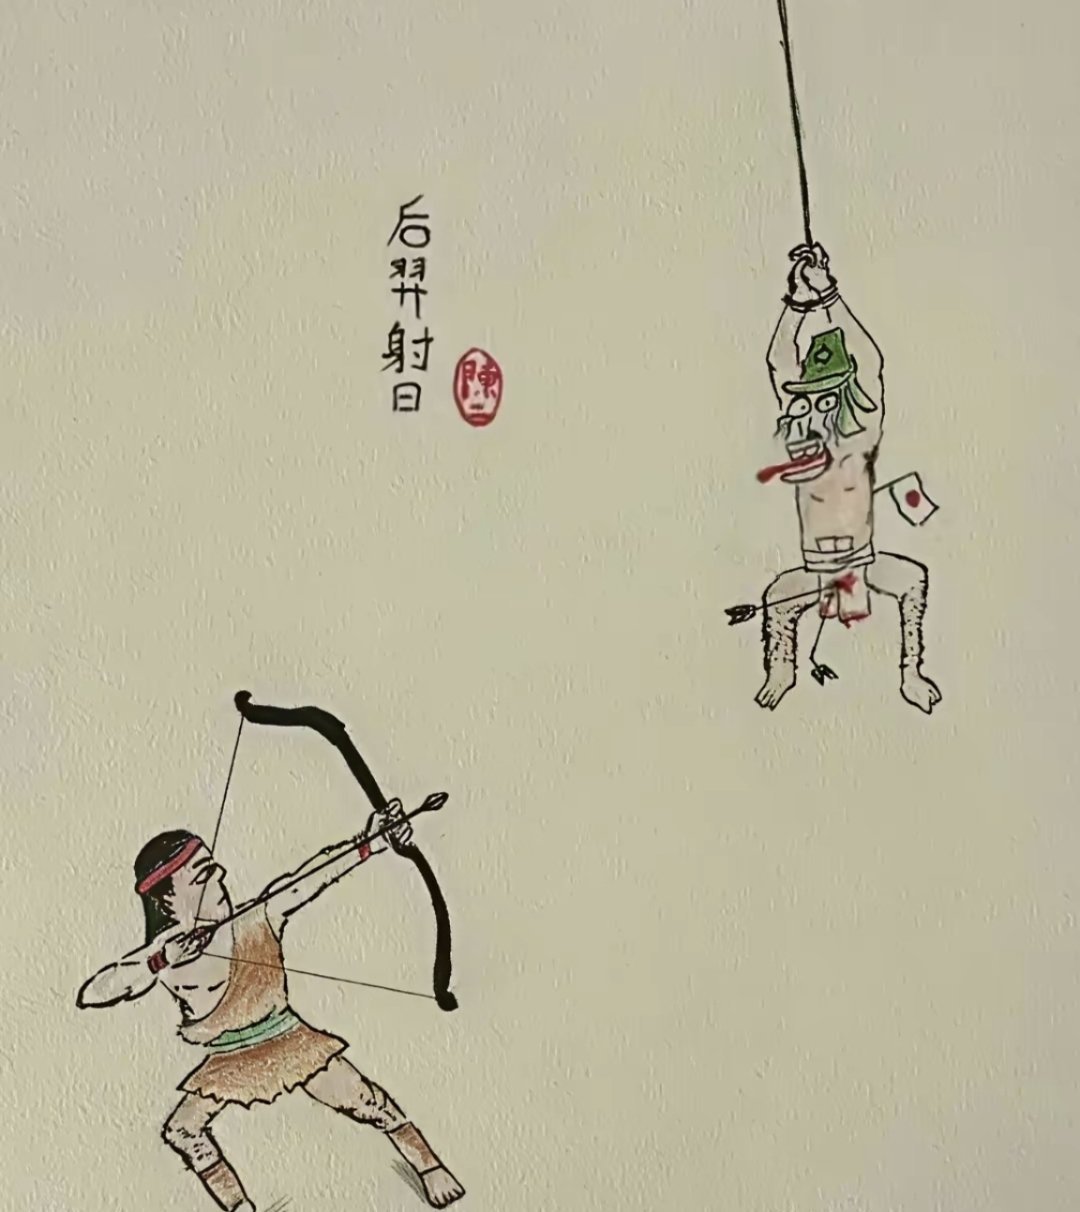 后羿射日
陳二